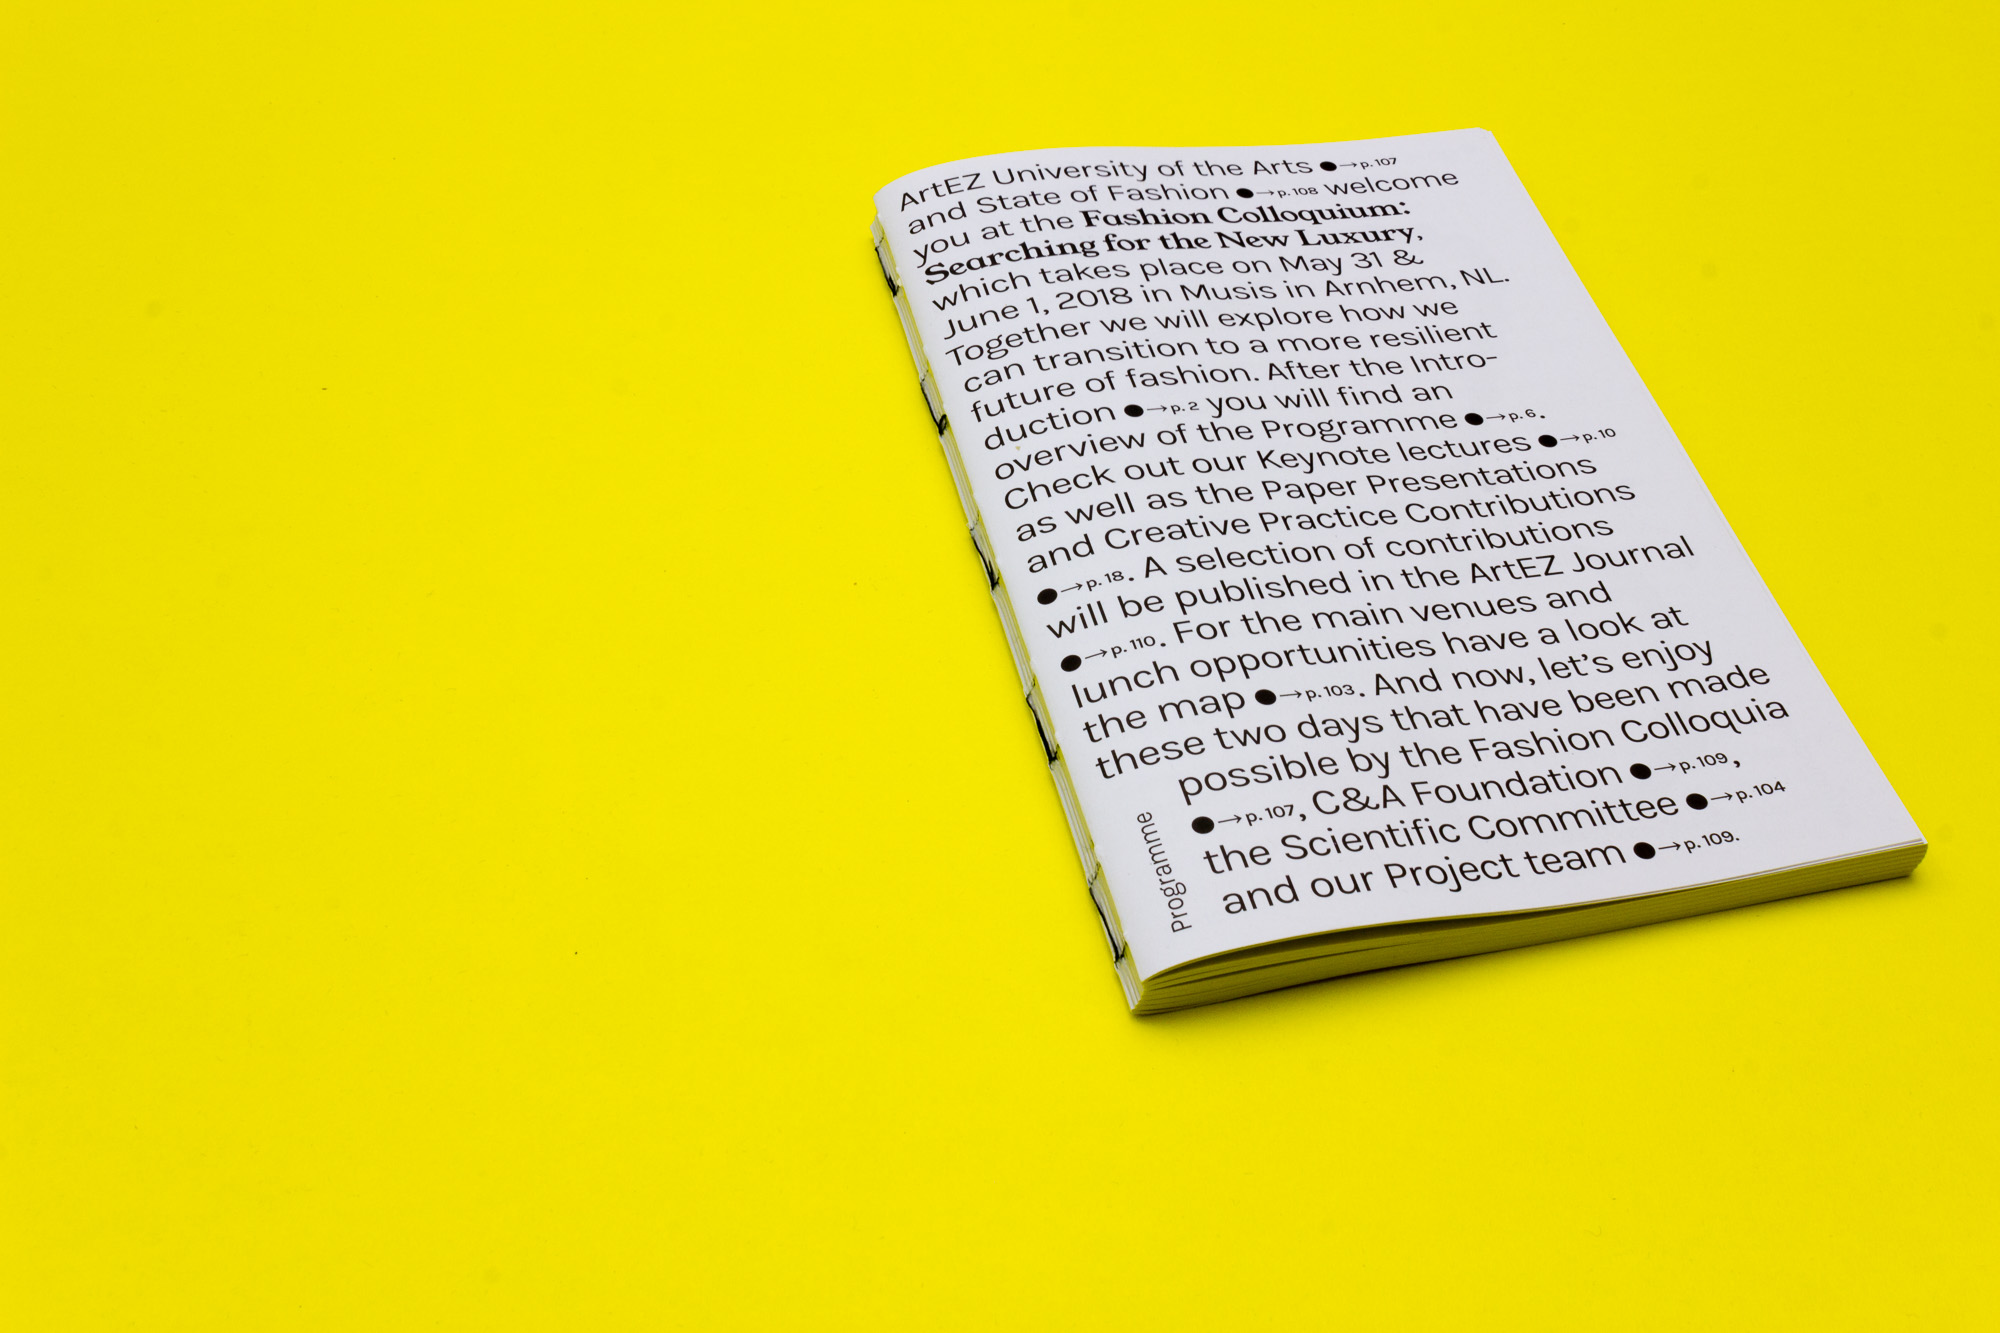 ArtEZ University of the Arts ●→p.107
and State of Fashion ●→p.108 welcome
you at the Fashion Colloquium:
Searching for the New Luxury,
which takes place on May 31 &
June 1, 2018 in Musis in Arnhem, NL.
Together we will explore how we
can transition to a more resilient
future of fashion. After the Intro-
duction ●→p.2 you will find an
overview of the Programme ●→p.6.
Check out our Keynote lectures ●→p.10
as well as the Paper Presentations
and Creative Practice Contributions
●→p.18. A selection of contributions
will be published in the ArtEZ Journal
●→p.110. For the main venues and
lunch opportunities have a look at
the map ●→p.103. And now, let's enjoy
these two days that have been made
possible by the Fashion Colloquia
●→p.107, C&A Foundation ●→p.109,
the Scientific Committee ●→p.104
and our Project team ●→p.109.
Programme